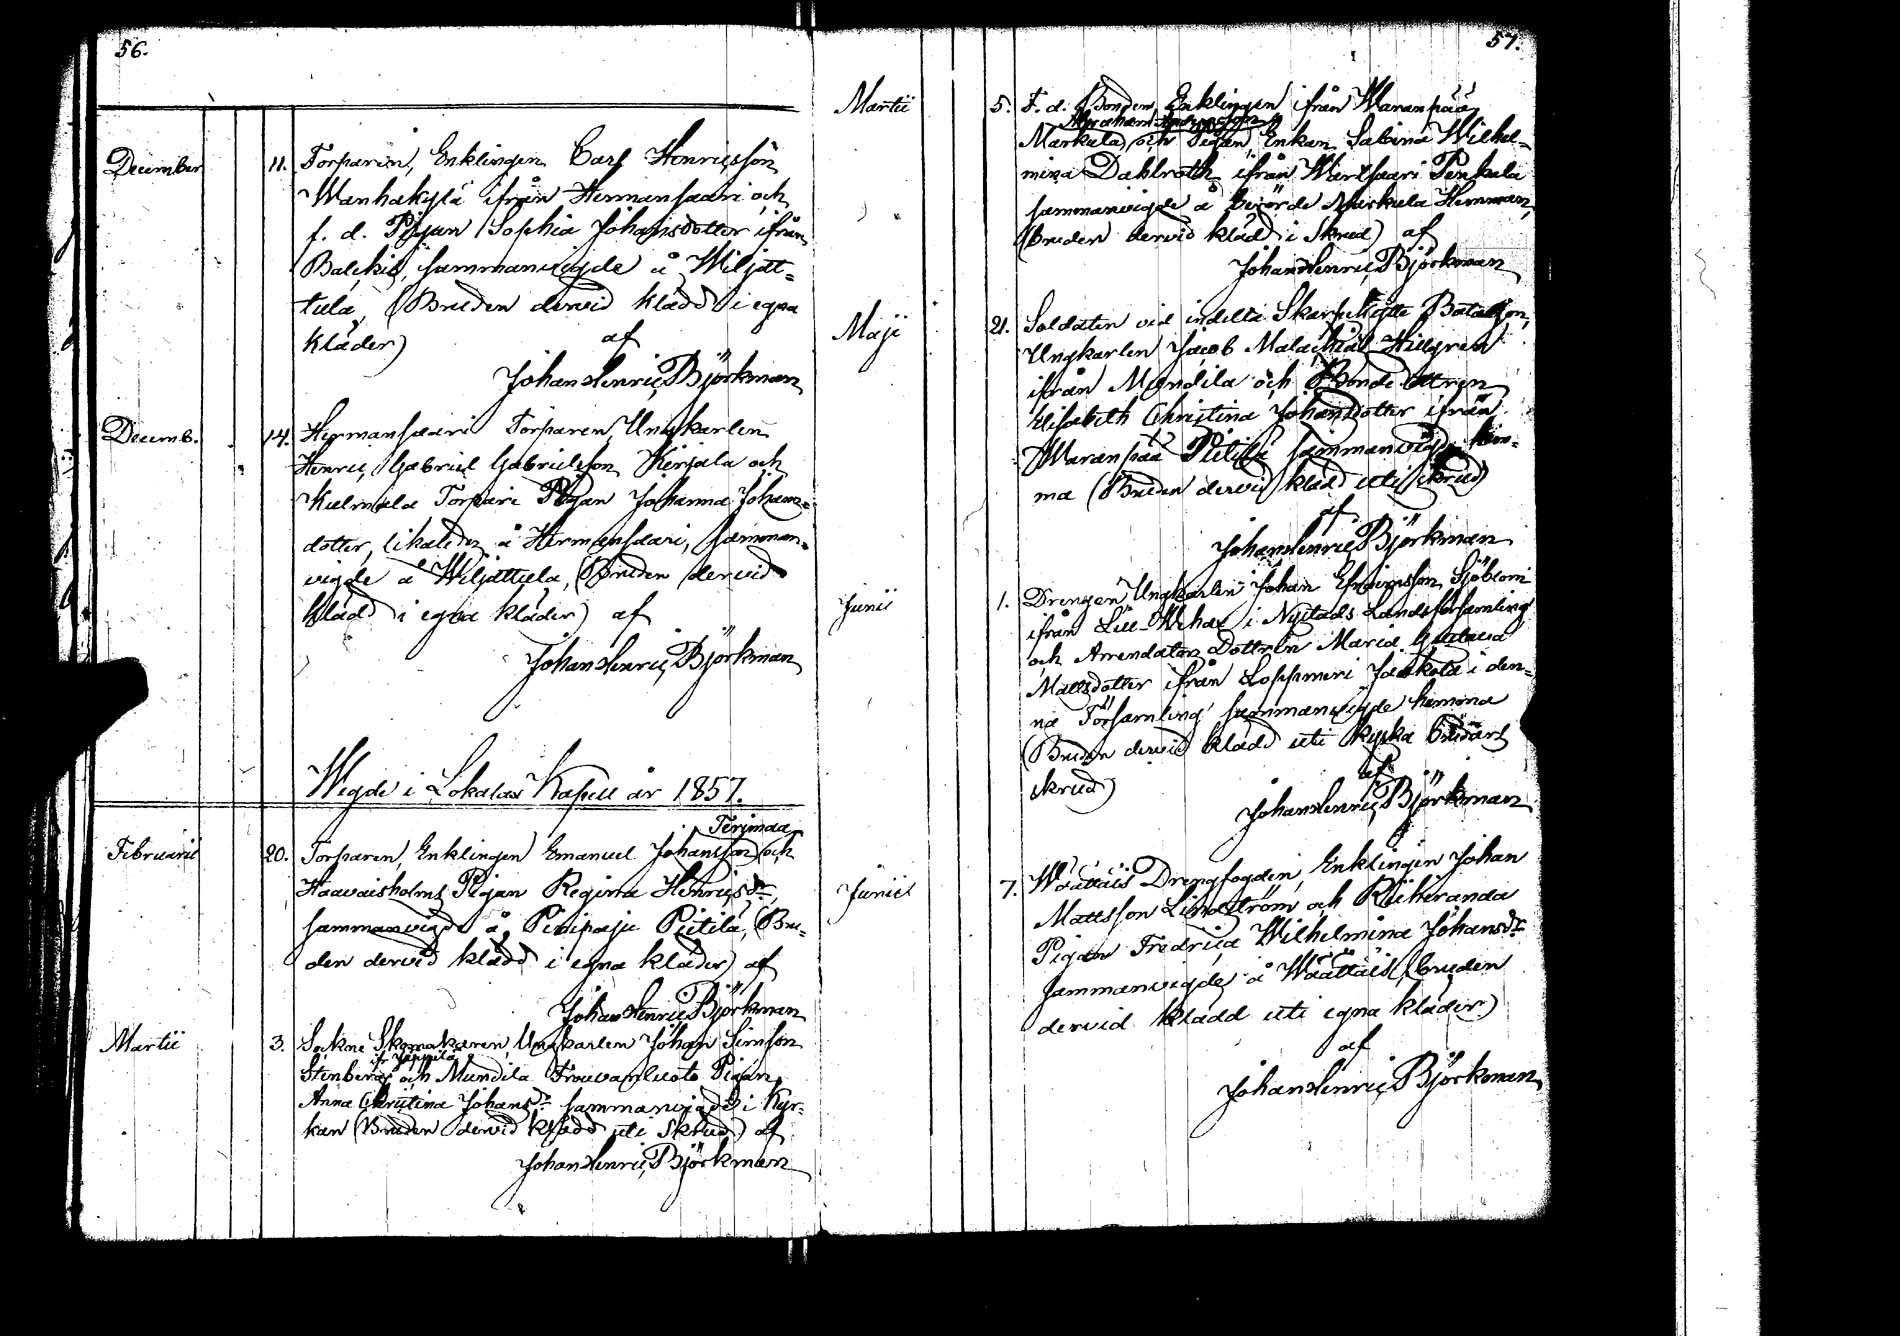 56.
December 11. Torparen, Enklingen Carl Henricsson
Wanhakylä ifrån Hermansaari och
f. d. Pigan Sophia Johansdotter ifrån
Balckis, sammanvigde å Wiljat-
tula, (Bruden dervid klädd i egna
kläder) af
Johan Henric Björkman
Decemb. 14. Hermansaari Torparen Ungkarlen
Henric Gabriel Gabrielsson Kirjala och
Kulmala Torpare Pigan Johanna Johans-
dotter, likaledes å Hermansaari, samman-
vigde å Wiljattula, (Bruden dervid
klädd i egna kläder) af
Johan Henric Björkman
Wigde i Lokalax Kapell år 1857.
Terjmaa
Februarii 20. Torparen, Enklingen Emanuel Johansson och
Haavaisholms Pigan Regina Henricsdr
sammanvigde å Pietilä, (Bru-
den dervid klädd i egna kläder) af
Johan Henric Björkman
Martii 3. Sockne Skomakaren, Ungkarlen Johan Simsson
Stenberg och Mundila Pigan
Anna Christina Johansdr sammanvigde i Kyr-
kan (Bruden dervid klädd uti Skrud) af
Johan Henric Björkman
57.
Martii 5. F. d. Bonden, Enklingen ifrån Waranpää
Abraham Andersson
Markula och Pigan, Enkan Sabina Wilhel-
mina Dahlroth ifrån Penkala
sammanvigde å berörde Markula Hemman,
(Bruden dervid klädd i Skrud) af
Johan Henric Björkman
Maji 21. Soldaten vid indelta Skarpskytte Bataljon,
Ungkarlen Jacob Malachias Hillgren
ifrån Mundila och Bonde dottren
Elisabeth Christina Johansdotter ifrån
Waranpää Pietilä sammanvigde hem-
ma (Bruden dervid klädd uti Skrud)
af
Johan Henric Björkman
Junii 1. Drengen Ungkarlen Johan Efraimsson Sjöblom
ifrån Lill-Wehas i Nystads Landsförsamling
och Arrendators Dottren Maria Gustava
Mattsdotter ifrån Loppmeri Jaakola i den-
na Församling sammanvigde hemma
(Bruden dervid klädd uti Kyrko
skrud) af
Johan Henric Björkman
Junii 7. Wäättäis Drengfogden, Enklingen Johan
Mattsson Lindström och Riihiranda
Pigan Fredrica Wilhelmina Johansdr
sammanvigde å Wäättäis, (bruden
dervid klädd uti egna kläder)
af
Johan Henric Björkman